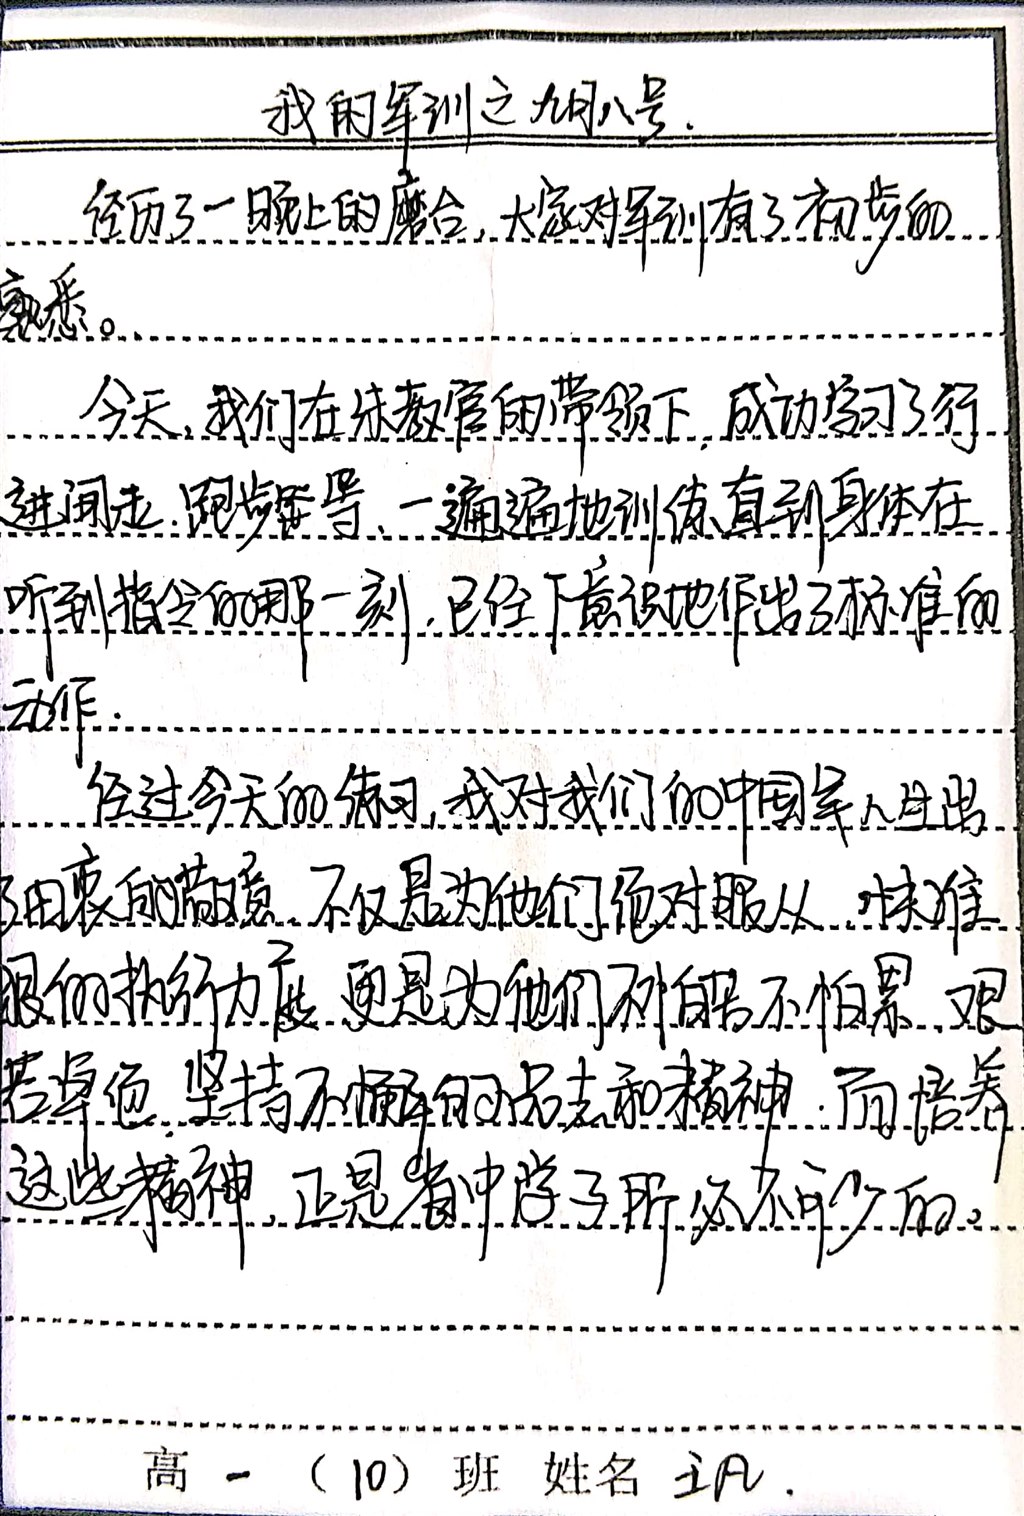 我的军训之九月八号.
经历了一晚上的磨合,大家对军训有了初步的
熟悉。
今天,我们在朱教官的带领下,成功学习了行
进间走、跑步等,一遍遍地训练直到身体在
听到指令的那一刻,已经下意识地作出了标准的
动作.
经过今天的练习,我对我们的中国军人生出
了由衷的敬意,不仅是为他们绝对服从、快准
狠的执行力度,更是为他们不怕苦不怕累、艰
苦卓绝、坚持不懈的品志和精神.而培养
这些精神,正是省中学子所必不可少的。
高一(10)班 姓名